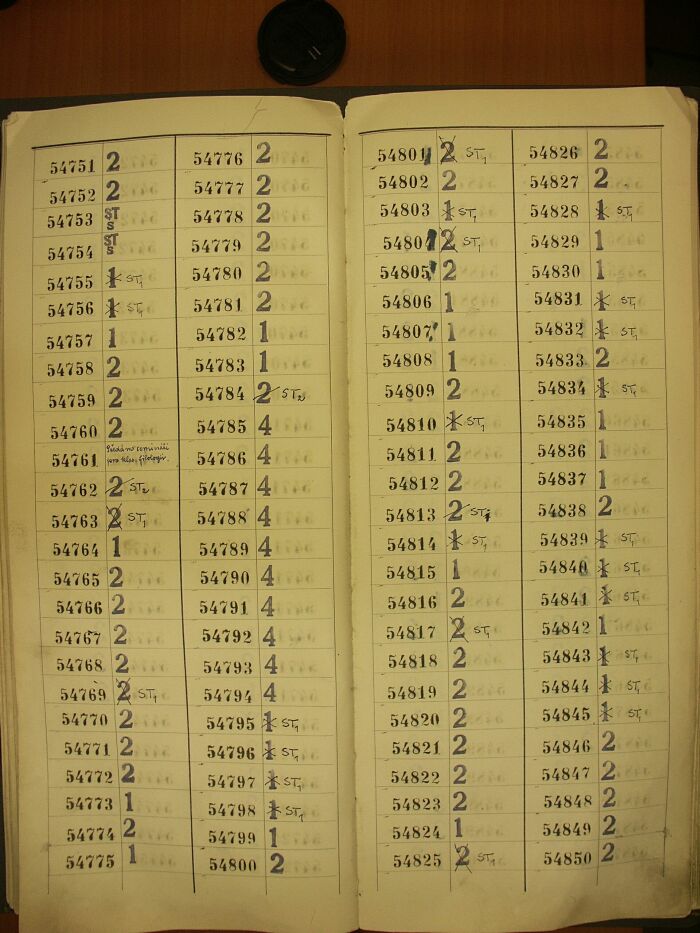 54751 2
54752 2
54753 ST S
54754 ST S
54755 1 ST1
54756 1 ST1
54757 1
54758 2
54759 2
54760 2
54761 Předáno semináři
pro klas. filologii.
54762 2 ST2
54763 2 ST1
54764 1
54765 2
54766 2
54767 2
54768 2
54769 2 ST1
54770 2
54771 2
54772 2
54773 1
54774 2
54775 1
54776 2
54777 2
54778 2
54779 2
54780 2
54781 2
54782 1
54783 1
54784 2 ST2
54785 4
54786 4
54787 4
54788 4
54789 4
54790 4
54791 4
54792 4
54793 4
54794 4
54795 1 ST1
54796 1 ST1
54797 1 ST1
54798 1 ST1
54799 1
54800 2
54801 2 ST1
54802 2
54803 1 ST1
54804 2 ST1
54805 2
54806 1
54807 1
54808 1
54809 2
54810 1 ST1
54811 2
54812 2
54813 2 ST2
54814 1 ST1
54815 1
54816 2
54817 2 ST1
54818 2
54819 2
54820 2
54821 2
54822 2
54823 2
54824 1
54825 2 ST1
54826 2
54827 2
54828 1 ST1
54829 1
54830 1
54831 1 ST1
54832 1 ST1
54833 2
54834 1 ST1
54835 1
54836 1
54837 1
54838 2
54839 1 ST1
54840 1 ST1
54841 1 ST1
54842 1
54843 1 ST1
54844 1 ST1
54845 1 ST1
54846 2
54847 2
54848 2
54849 2
54850 2